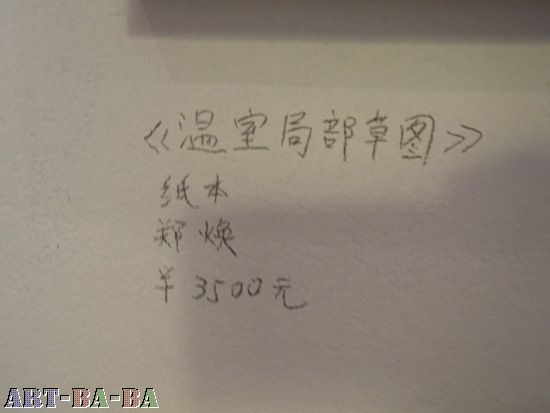 《温室局部草图》
纸本
郑焕
¥3500元
ART-BA-BA